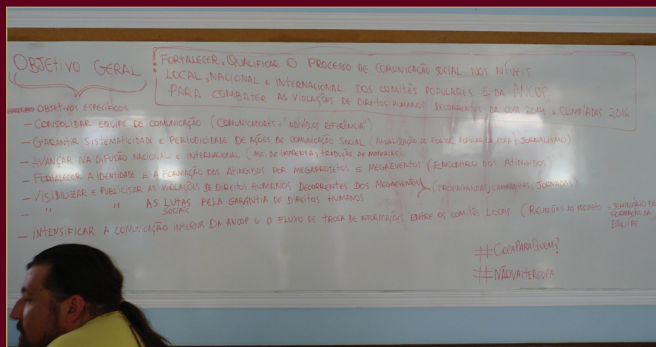 OBJETIVO GERAL
FORTALECER, QUALIFICAR O PROCESSO DE COMUNICAÇÃO SOCIAL NOS NÍVEIS
LOCAL, NACIONAL E INTERNACIONAL DOS COMITÊS POPULARES E DA ANCOP
PARA COMBATER AS VIOLAÇÕES DE DIREITOS HUMANOS DECORRENTES DA COPA 2014 E OLIMPÍADAS 2016
OBJETIVOS ESPECÍFICOS
- CONSOLIDAR EQUIPE DE COMUNICAÇÃO (COMUNICADORES + "INDIVÍDUOS REFERÊNCIA")
- GARANTIR SISTEMATICIDADE E PERIODICIDADE DE AÇÕES DE COMUNICAÇÃO SOCIAL (ATUALIZAÇÃO DO PORTAL POPULAR DA COPA, JORNALISMO)
- AVANÇAR NA DIFUSÃO NACIONAL E INTERNACIONAL (ASS. DE IMPRENSA, TRADUÇÃO DE MATERIAIS)
- FORTALECER A IDENTIDADE E A FORMAÇÃO DOS ATINGIDOS POR MEGAPROJETOS E MEGAEVENTOS (ENCONTRO DOS ATINGIDOS)
- VISIBILIZAR E PUBLICIZAR AS VIOLAÇÕES DE DIREITOS HUMANOS DECORRENTES DOS MEGAEVENTOS (CAMPANHAS, JORNADAS)
- " " AS LUTAS SOCIAIS PELA GARANTIA DE DIREITOS HUMANOS
- INTENSIFICAR A COMUNICAÇÃO INTERNA DA ANCOP E O FLUXO DE TROCA DE INFORMAÇÕES ENTRE OS COMITÊS LOCAIS (REUNIÕES DO PROJETO + SEMINÁRIO DE FORMAÇÃO DA EQUIPE
#COPAPARAQUEM?
#NÃOVAITERCOPA